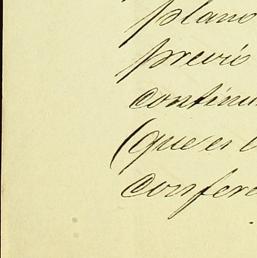 plano
previo
continu
(que es
confere